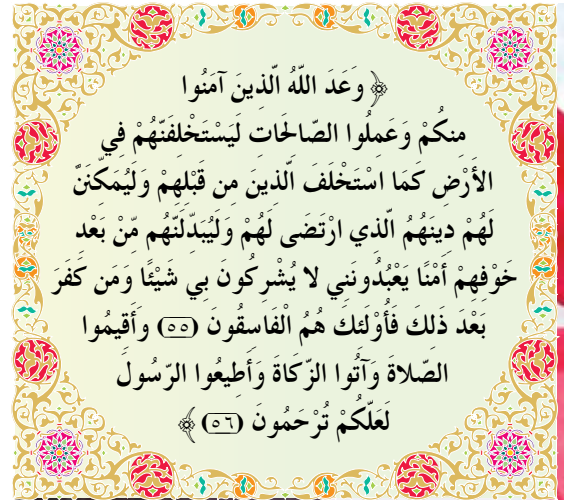 ﴿ وَعَدَ اللَّهُ الَّذِينَ آمَنُوا
مِنكُمْ وَعَمِلُوا الصَّالِحَاتِ لَيَسْتَخْلِفَنَّهُمْ فِي
الأَرْضِ كَمَا اسْتَخْلَفَ الَّذِينَ مِن قَبْلِهِمْ وَلَيُمَكِّنَنَّ
لَهُمْ دِينَهُمُ الَّذِي ارْتَضَى لَهُمْ وَلَيُبَدِّلَنَّهُم مِّنْ بَعْدِ
خَوْفِهِمْ أَمْنًا يَعْبُدُونَنِي لا يُشْرِكُونَ بِي شَيْئًا وَمَن كَفَرَ
بَعْدَ ذَلِكَ فَأُوْلَئِكَ هُمُ الْفَاسِقُون (٥٥) وَأَقِيمُوا
الصَّلاةَ وَآتُوا الزَّكَاةَ وَأَطِيعُوا الرَّسُولَ
لَعَلَّكُمْ تُرْحَمُونَ (٥٦) ﴾